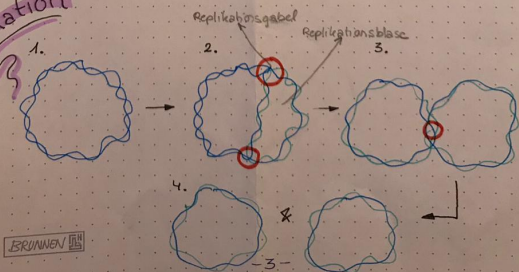 Replikationsgabel
Replikationsblase
1.
2.
3.
4.
&
BRUNNEN
-3-